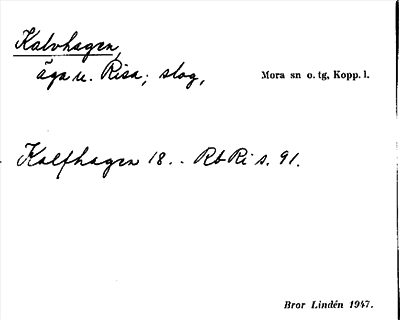 Kalvhagen,
äga u. Risa; slog, Mora sn o. tg, Kopp. l.
Kalfhagen 18. . Rb Ri s. 91.
Bror Lindén 1947.